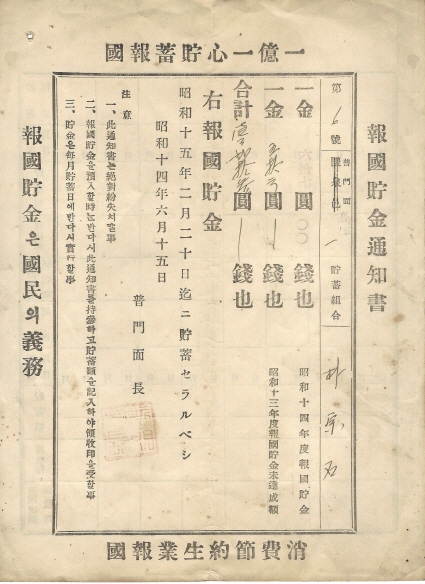 一億一心貯蓄報國
報國貯金通知書
第6號
普門面
貯蓄組合
一金 圓 錢也 昭和十四年度報國貯金
一金 圓 錢也 昭和十三年度報國貯金未達成額
合計 圓 錢也
右報國貯金
昭和十五年二月二十日迄ニ貯蓄セラルベシ
昭和十四年六月十五日
普門面長
注意
一、此通知書는絕對紛失치말事
二、報國貯金을預入할時는반다시此通知書를持參하고貯蓄額을記入하야領收印을受할事
三、貯金은每月貯蓄日에반다시實行할事
報國貯金은國民의義務
消費節約生業報國